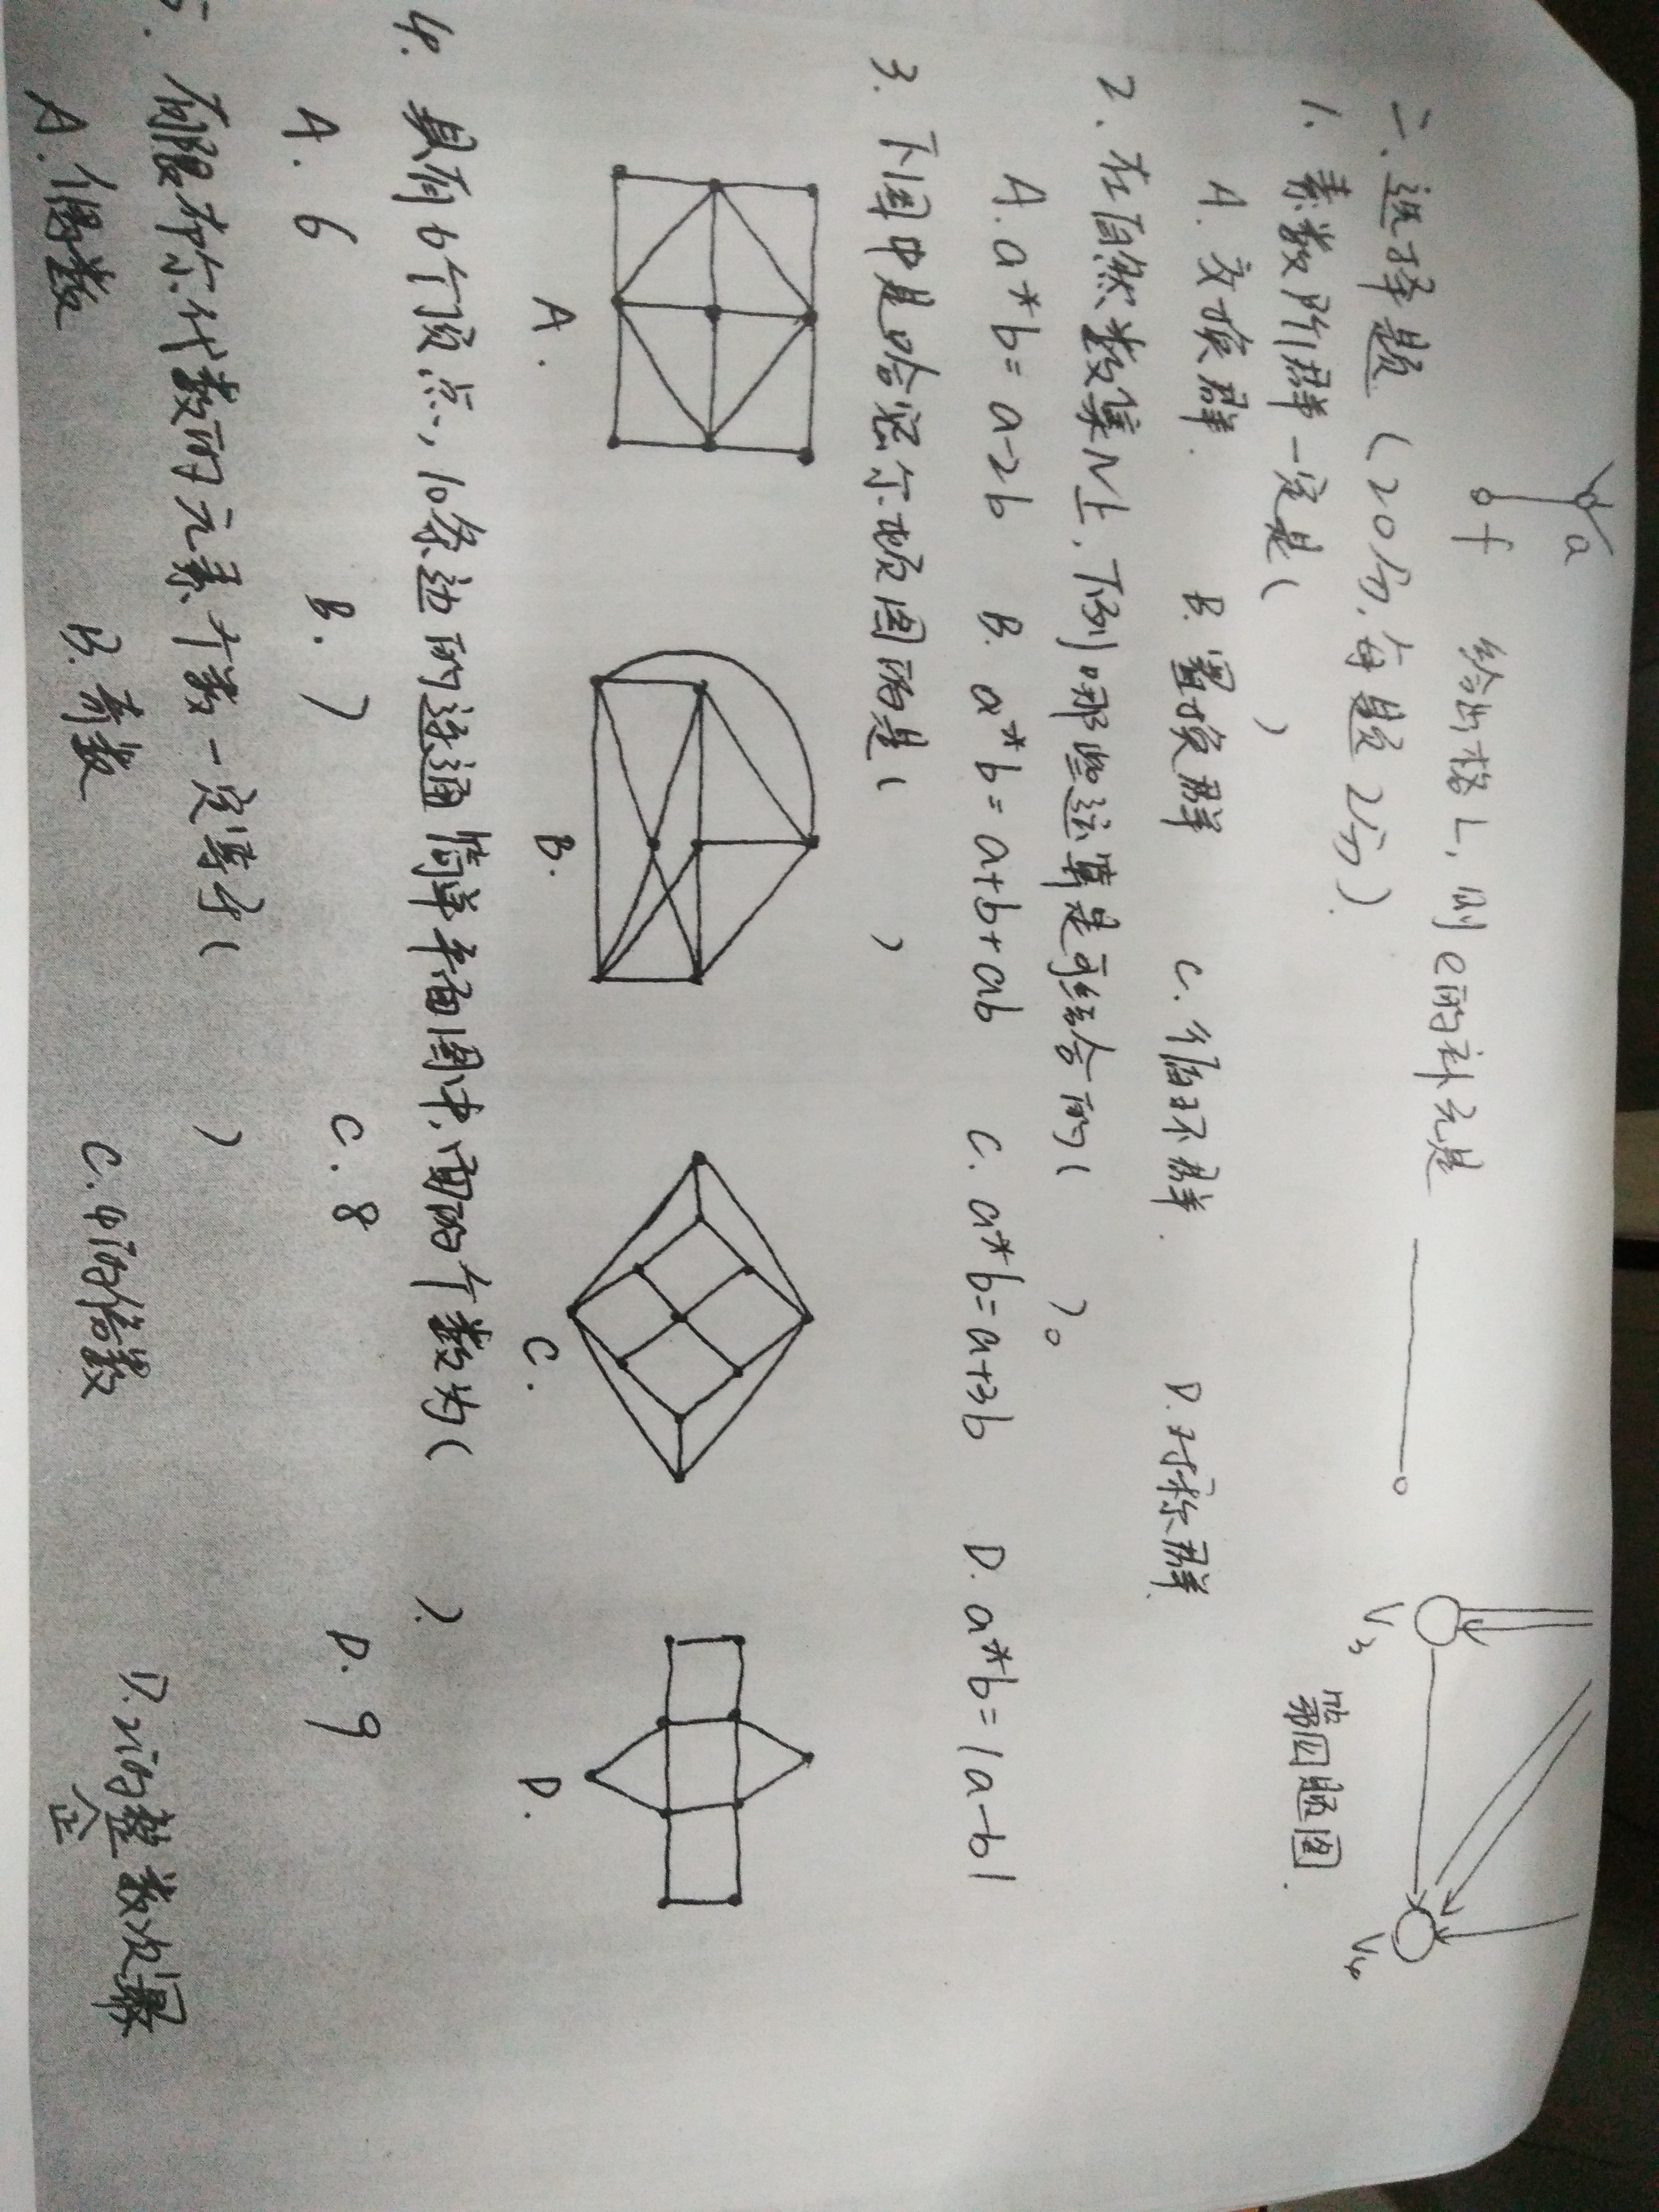 a
f 给出格L,则e的补元是
V3 V4
第四题图.
二.选择题(20分,每题2分).
1. 素数阶群一定是( )
A. 交换群. B. 置换群 C. 循环群. D. 对称群.
2. 在自然数集N上,下列哪些运算是可结合的( )。
A. a*b=a-2b B. a*b=a+b+ab C. a*b=a+3b D. a*b=|a-b|
3. 下图中是哈密尔顿图的是( )
A. B. C. D.
4. 具有6个顶点,10条边的连通简单平面图中,面的个数为( ).
A. 6 B. 7 C. 8 D. 9
5. 有限布尔代数的元素个数一定等于( )
A. 偶数 B. 奇数 C. 4的倍数 D. 2的整数次幂